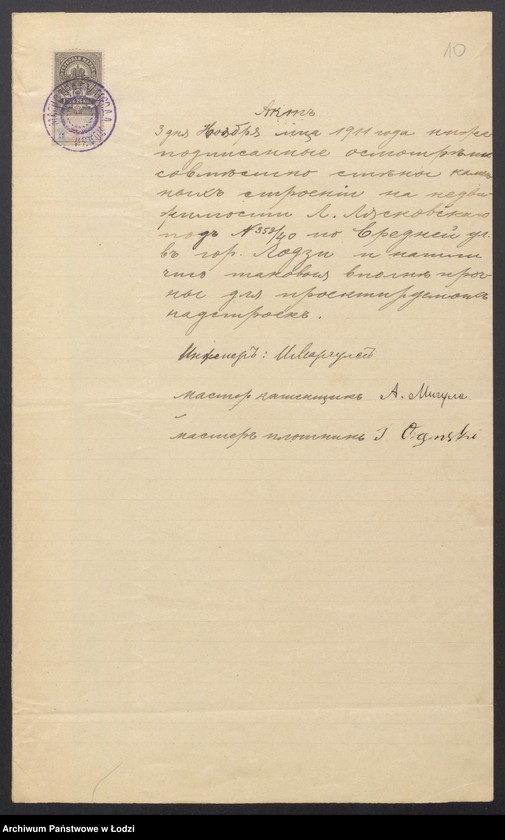 10
Актъ
3 дня Ноября м-ца 1911 года ниже
подписанные осмотрѣли
совмѣстно стѣны камен
ныхъ строеній на недви
жимости Л. Лясковскаго
подъ № 358/40 по Средней ул.
въ гор. Лодзи и нашли
что таковыя вполнѣ проч
ны для проектируемыхъ
надстроекъ.
Инженеръ:
мастер каменщикъ А. Мигула
мастеръ плотникъ J Ogński
Archiwum Państwowe w Łodzi